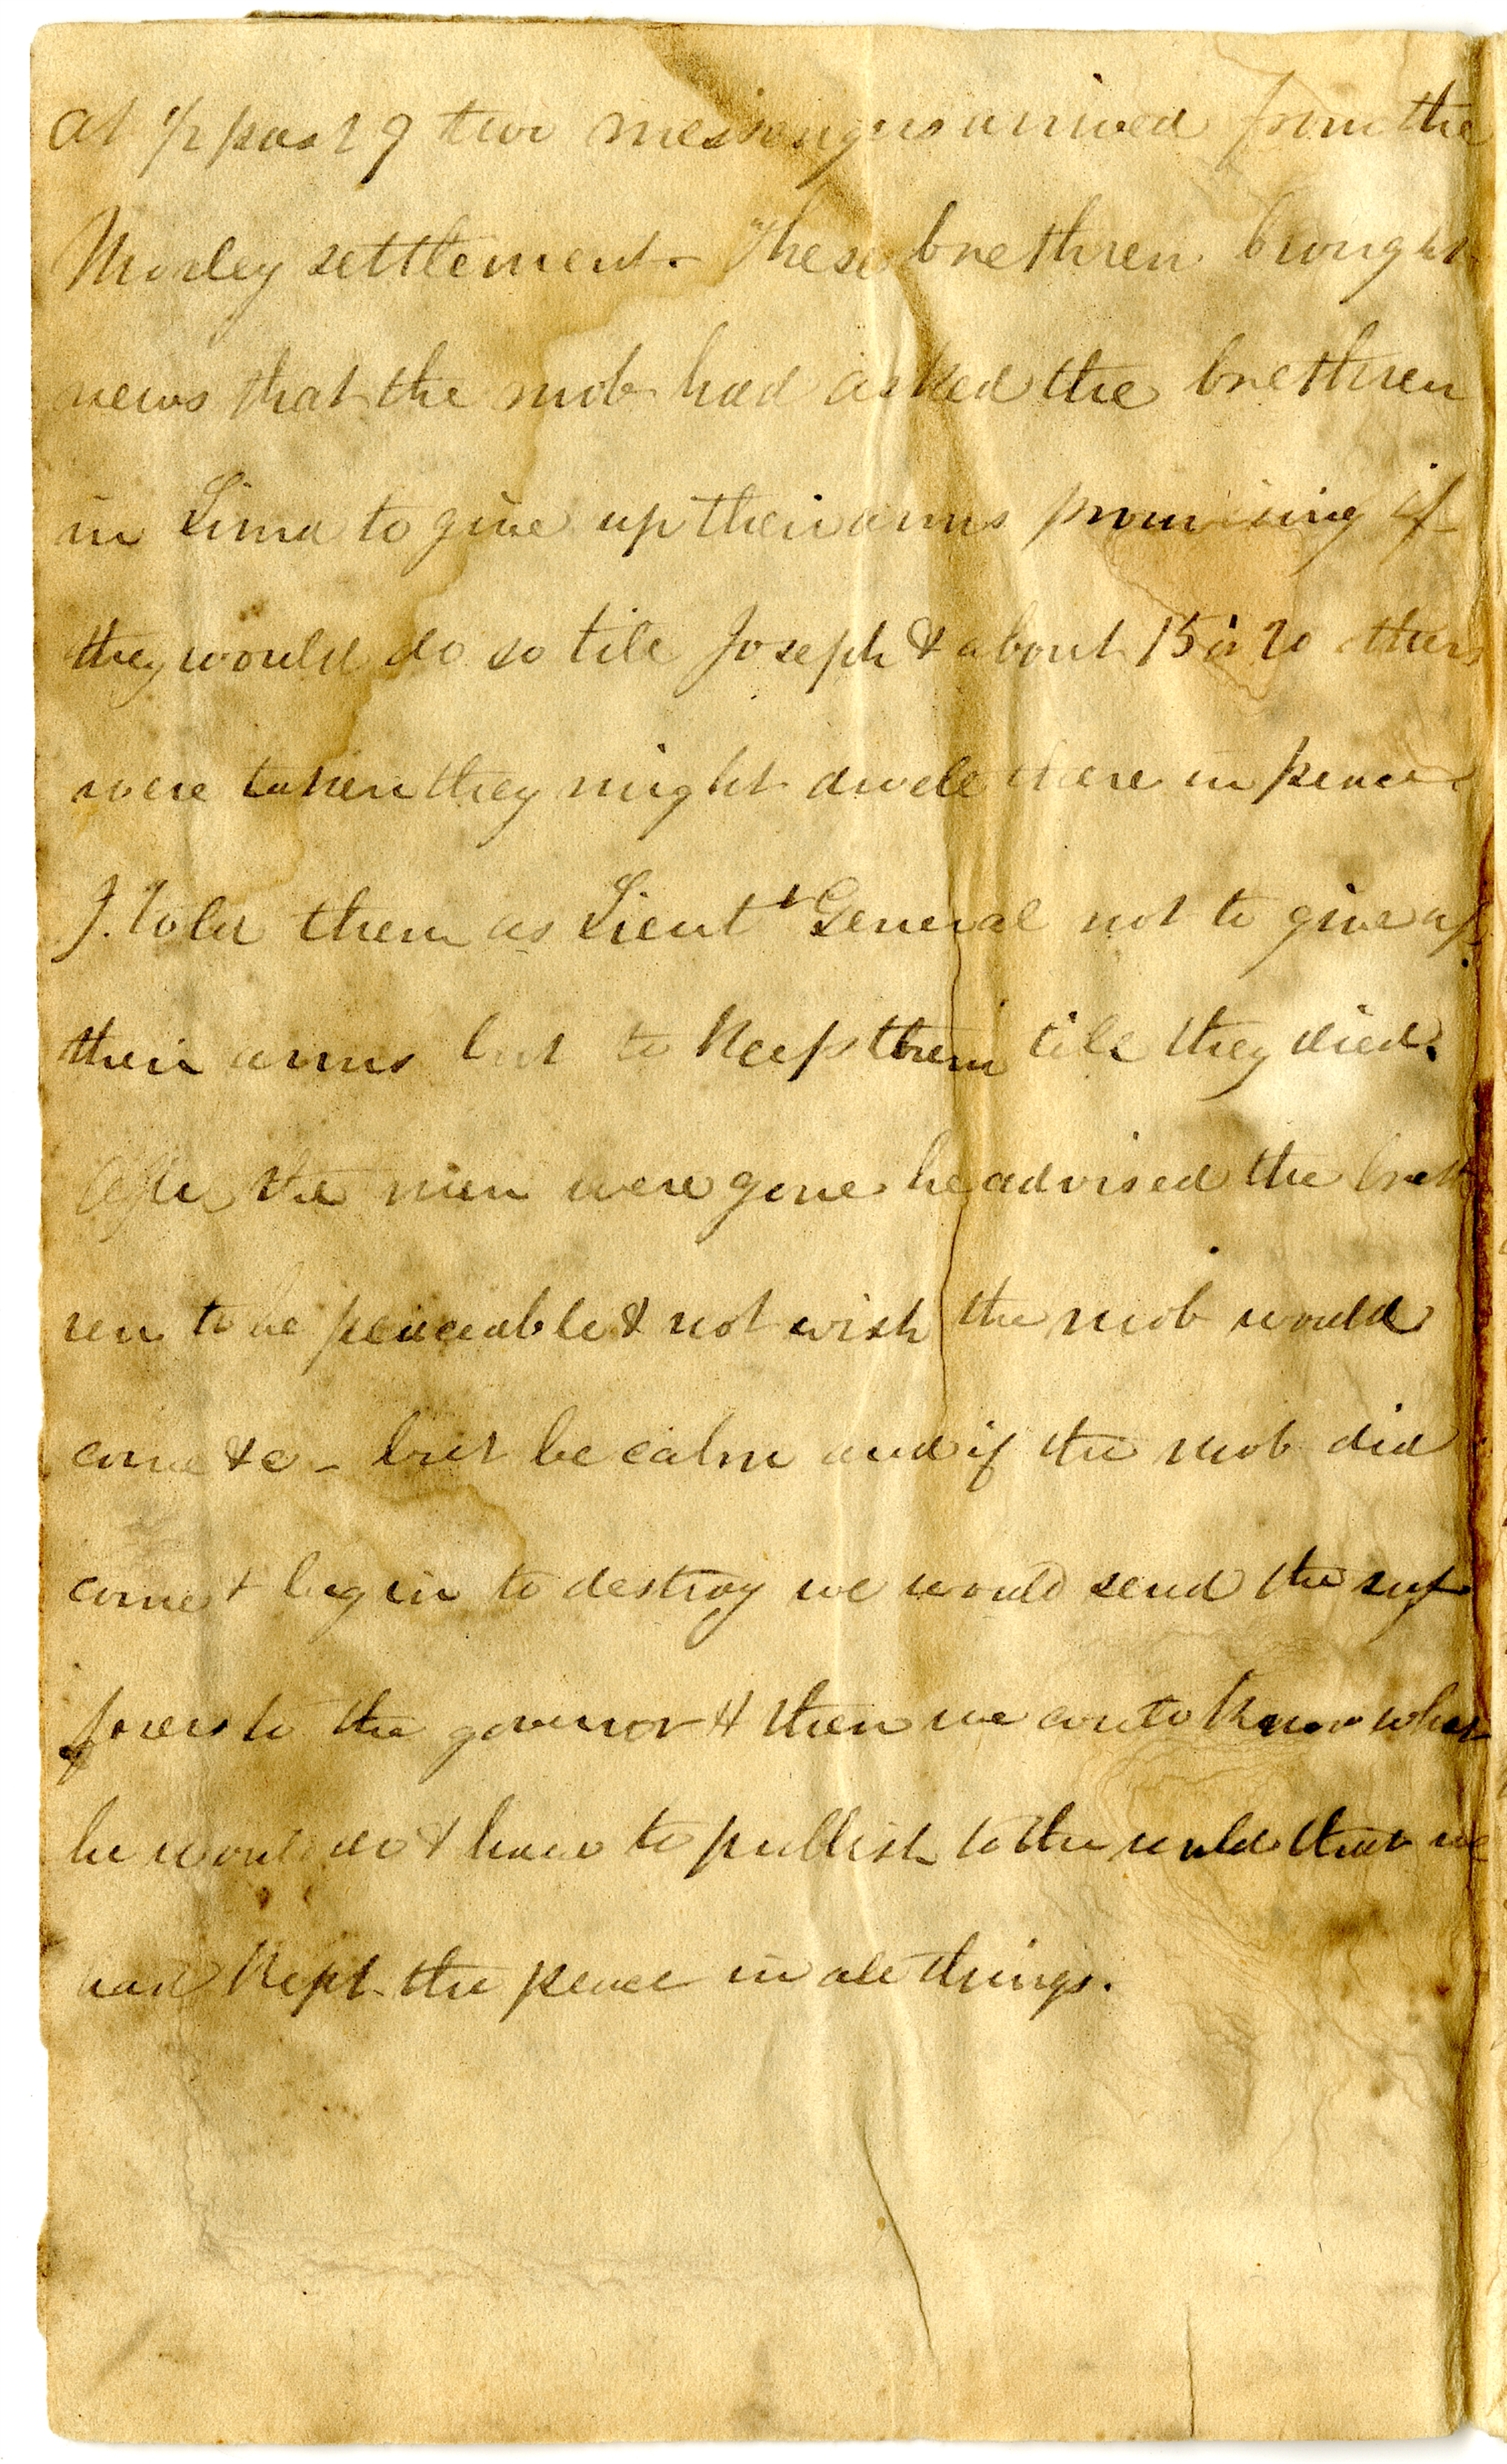 At 1/2 past 9 two messengers arrived from the
Morley settlement. These brethren brought
news that the mob had asked the brethren
in Lima to give up their arms promising if
they would do so till Joseph & about 15 or 20 others
were taken they might dwell there in peace.
J. told them as Lieut General not to give up
their arms but to keep them till they died.
After the men were gone he advised the breth
ren to be peaceable & not wish the mob would
come &c - but be calm and if the mob did
come & begin to destroy we would send the suf
ferers to the governor & then we could know what
he would do & have to publish to the world that we
had kept the peace in all things.